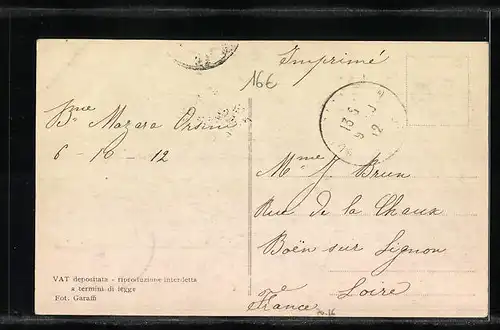 Imprimé
16€
Bne Mazara Orsini
6 - 10 - 12
Mme J. Brun
Rue de la Chaux
Boën sur Lignon
Loire
France
VAT depositata - riproduzione interdetta
a termini di legge
Fot. Garaffi